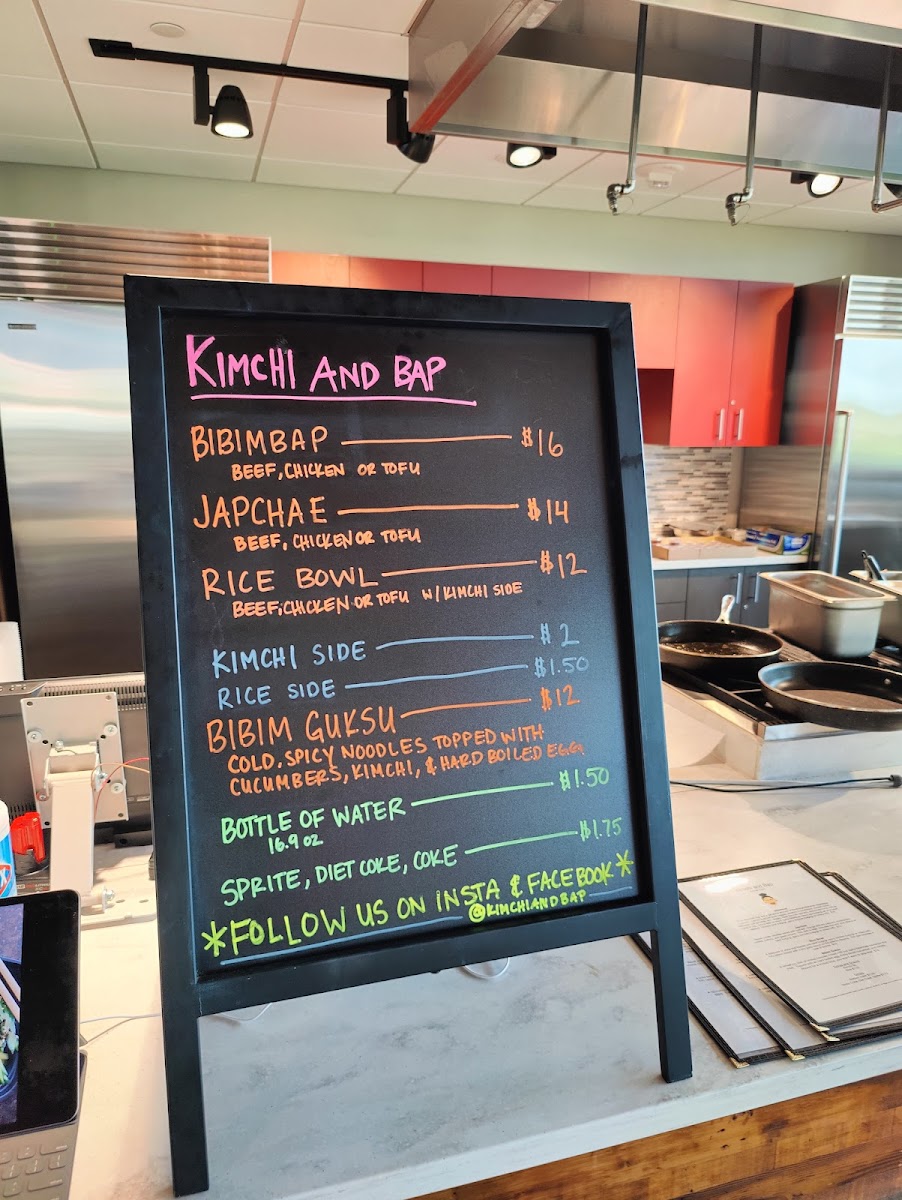 KIMCHI AND BAP
BIBIMBAP $16
BEEF, CHICKEN OR TOFU
JAPCHAE $14
BEEF, CHICKEN OR TOFU
RICE BOWL $12
BEEF, CHICKEN OR TOFU W/KIMCHI SIDE
KIMCHI SIDE $2
RICE SIDE $1.50
BIBIM GUKSU $12
COLD. SPICY NOODLES TOPPED WITH
CUCUMBERS, KIMCHI, & HARD BOILED EGG
BOTTLE OF WATER $1.50
16.9 OZ
SPRITE, DIET COKE, COKE $1.75
*FOLLOW US ON INSTA & FACEBOOK*
@KIMCHIANDBAP